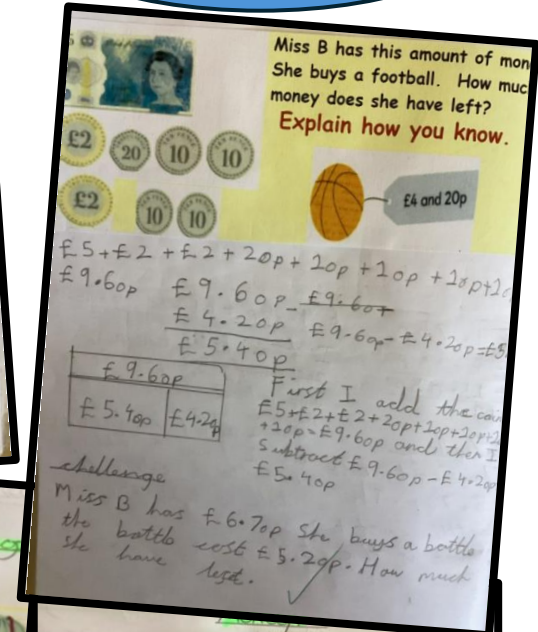 Miss B has this amount of mon
She buys a football. How muc
money does she have left?
Explain how you know.
£2
20
10
10
£2
10
10
£4 and 20p
£5+£2+£2+20p+10p+10p+10p+10
£9.60p
£9.60p-
£4.20p
£5.40p
£9.60p-£4.20p=£5
£9.60p
£5.40p
£4.20p
First I add the coi
£5+£2+£2+20p+10p+10p+1
+10p=£9.60p and then I
subtract £9.60p-£4.20p
£5.40p
challenge
Miss B has £6.70p She buys a bottle
the bottle cost £5.20p. How much
she have left.